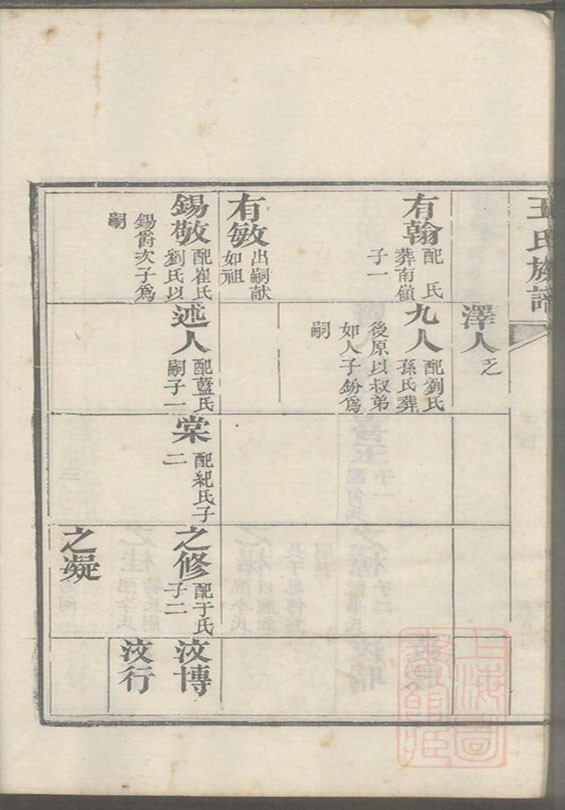 王氏族譜
澤人
乏
有翰
配 氏
葬南嶺
子一
九人
配劉氏
孫氏葬
後原以叔弟
如人子鈖為
嗣
有敏
出嗣献
如祖
錫敬
配崔氏
劉氏以
錫爵次子為
嗣
述人
配藍氏
嗣子一
棠
配紀氏子
二
之修
配于氏
子二
汶博
汶行
之凝